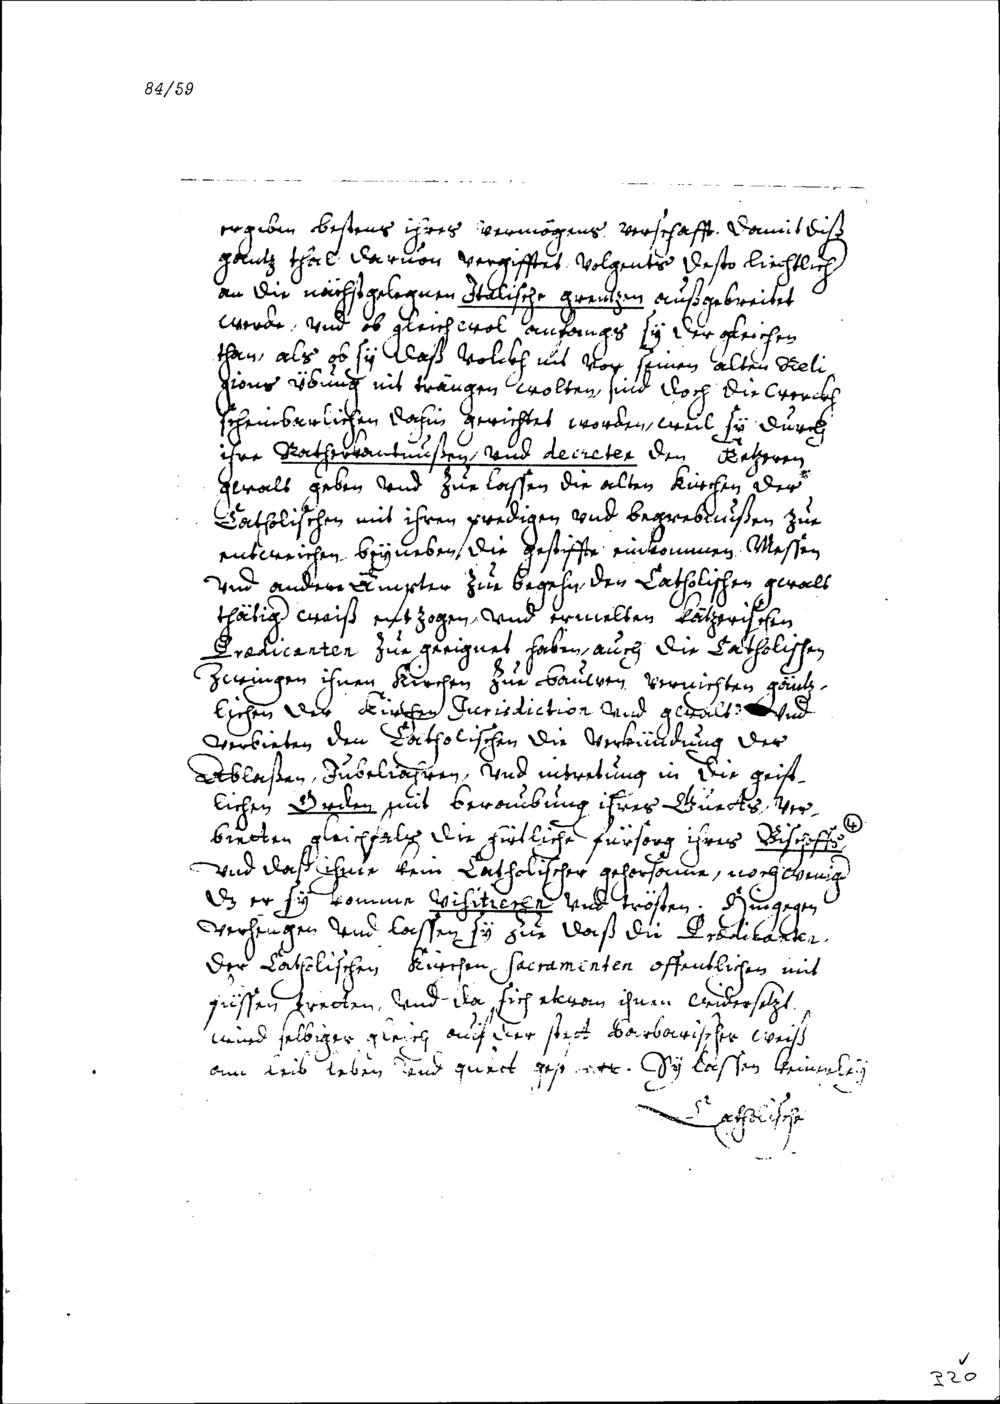 84/59
ergiben bestens ihres vermögens verschafft. Damit diß
gantz thal daruon vergifftet volgents desto liechtlich
an die nächstgelegnen Italische grentzen außgebreitet
werde, vnd ob gleichwol anfangs sÿ der gleichen
than, als ob sÿ daß volckh nit von seinen alten Reli
gions übung nit trängen wolten, sind doch die werckh
scheinbarlichen dahin gerichtet worden, weil sÿ durch
ihre Rathserkantnußen, vnd decreten den Ketzeren
gwalt geben vnd zue lassen die alten Kirchen der
Catholischen mit ihren predigen vnd begrebnußen zue
entweichen beÿneben, die gestiffte einkommen Messen
vnd andere Ämpter zue begehn, den Catholischen gwalt
thätig weiß entzogen, vnd ermelten kätzerischen
Prædicanten zue geeignet haben, auch die Catholischen
zwingen ihnen Kirchen zue bauwen, vernichten gäntz-
lichen der Kirchen Jurisdiction vnd gwalt: vnd
verbieten den Catholischen die verkündung der
Ablaßen, Jubeliahren, vnd intretung in die geist-
lichen Orden, mit beraubung ihres Guetts, ver-
bietten gleichfals die hirtliche fürsorg ihres Bischoffs, 4
vnd daß ihme kein Catholischer gehorsamme, noch wenig
dz er sÿ komme visitieren vnd trösten. Hingegen
verhengen vnd lassen sÿ zue daß die Prædicanten
der Catholischen Kirchen Sacramenten offentlichen mit
füssen tretten, vnd da sich etwan ihnen widersetzt
wird selbiger gleich auf der stett barbarischer weiß
am leib leben vnd guett . Sÿ lassen keinerleÿ
Catholische
320